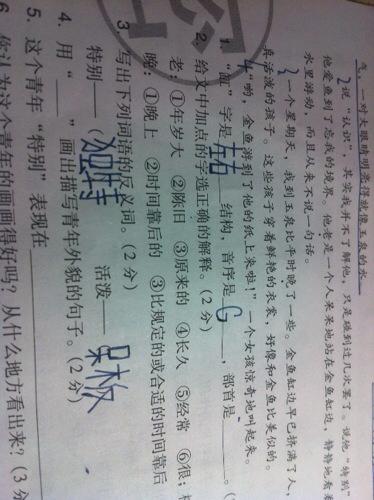 气，一对大眼睛明亮得就像玉泉的水
2 说“认识”，其实我并不了解他，只是碰到过几次罢了。说他“特别”
他爱鱼到了忘我的境界。他老是一个人呆呆地站在金鱼缸边，静静地看着
水里游动，而且从来不说一句话。
3 一个星期天，我到玉泉比平时晚了一些。金鱼缸边早已挤满了人，
活泼的孩子。这些孩子穿着鲜艳的衣裳，好像和金鱼比美似的。
4 “哟，金鱼游到了他的纸上来啦！”一个女孩惊奇地叫起来。
1. “缸”字是左右结构，音序是G，部首是____。(
2. 给文中加点的字选正确的解释。(2分)
老：①年岁大 ②陈旧 ③原来的 ④长久 ⑤经常 ⑥很；
晚：①晚上 ②时间靠后的 ③比规定的或合适的时间靠后
3. 写出下列词语的反义词。(2分)
特别——(独特 活泼——呆板
4. 用“____”画出描写青年外貌的句子。(2分)
5. 这个青年“特别”表现在
6. 你认为这个青年的画画得好吗？从什么地方看出来？(3分